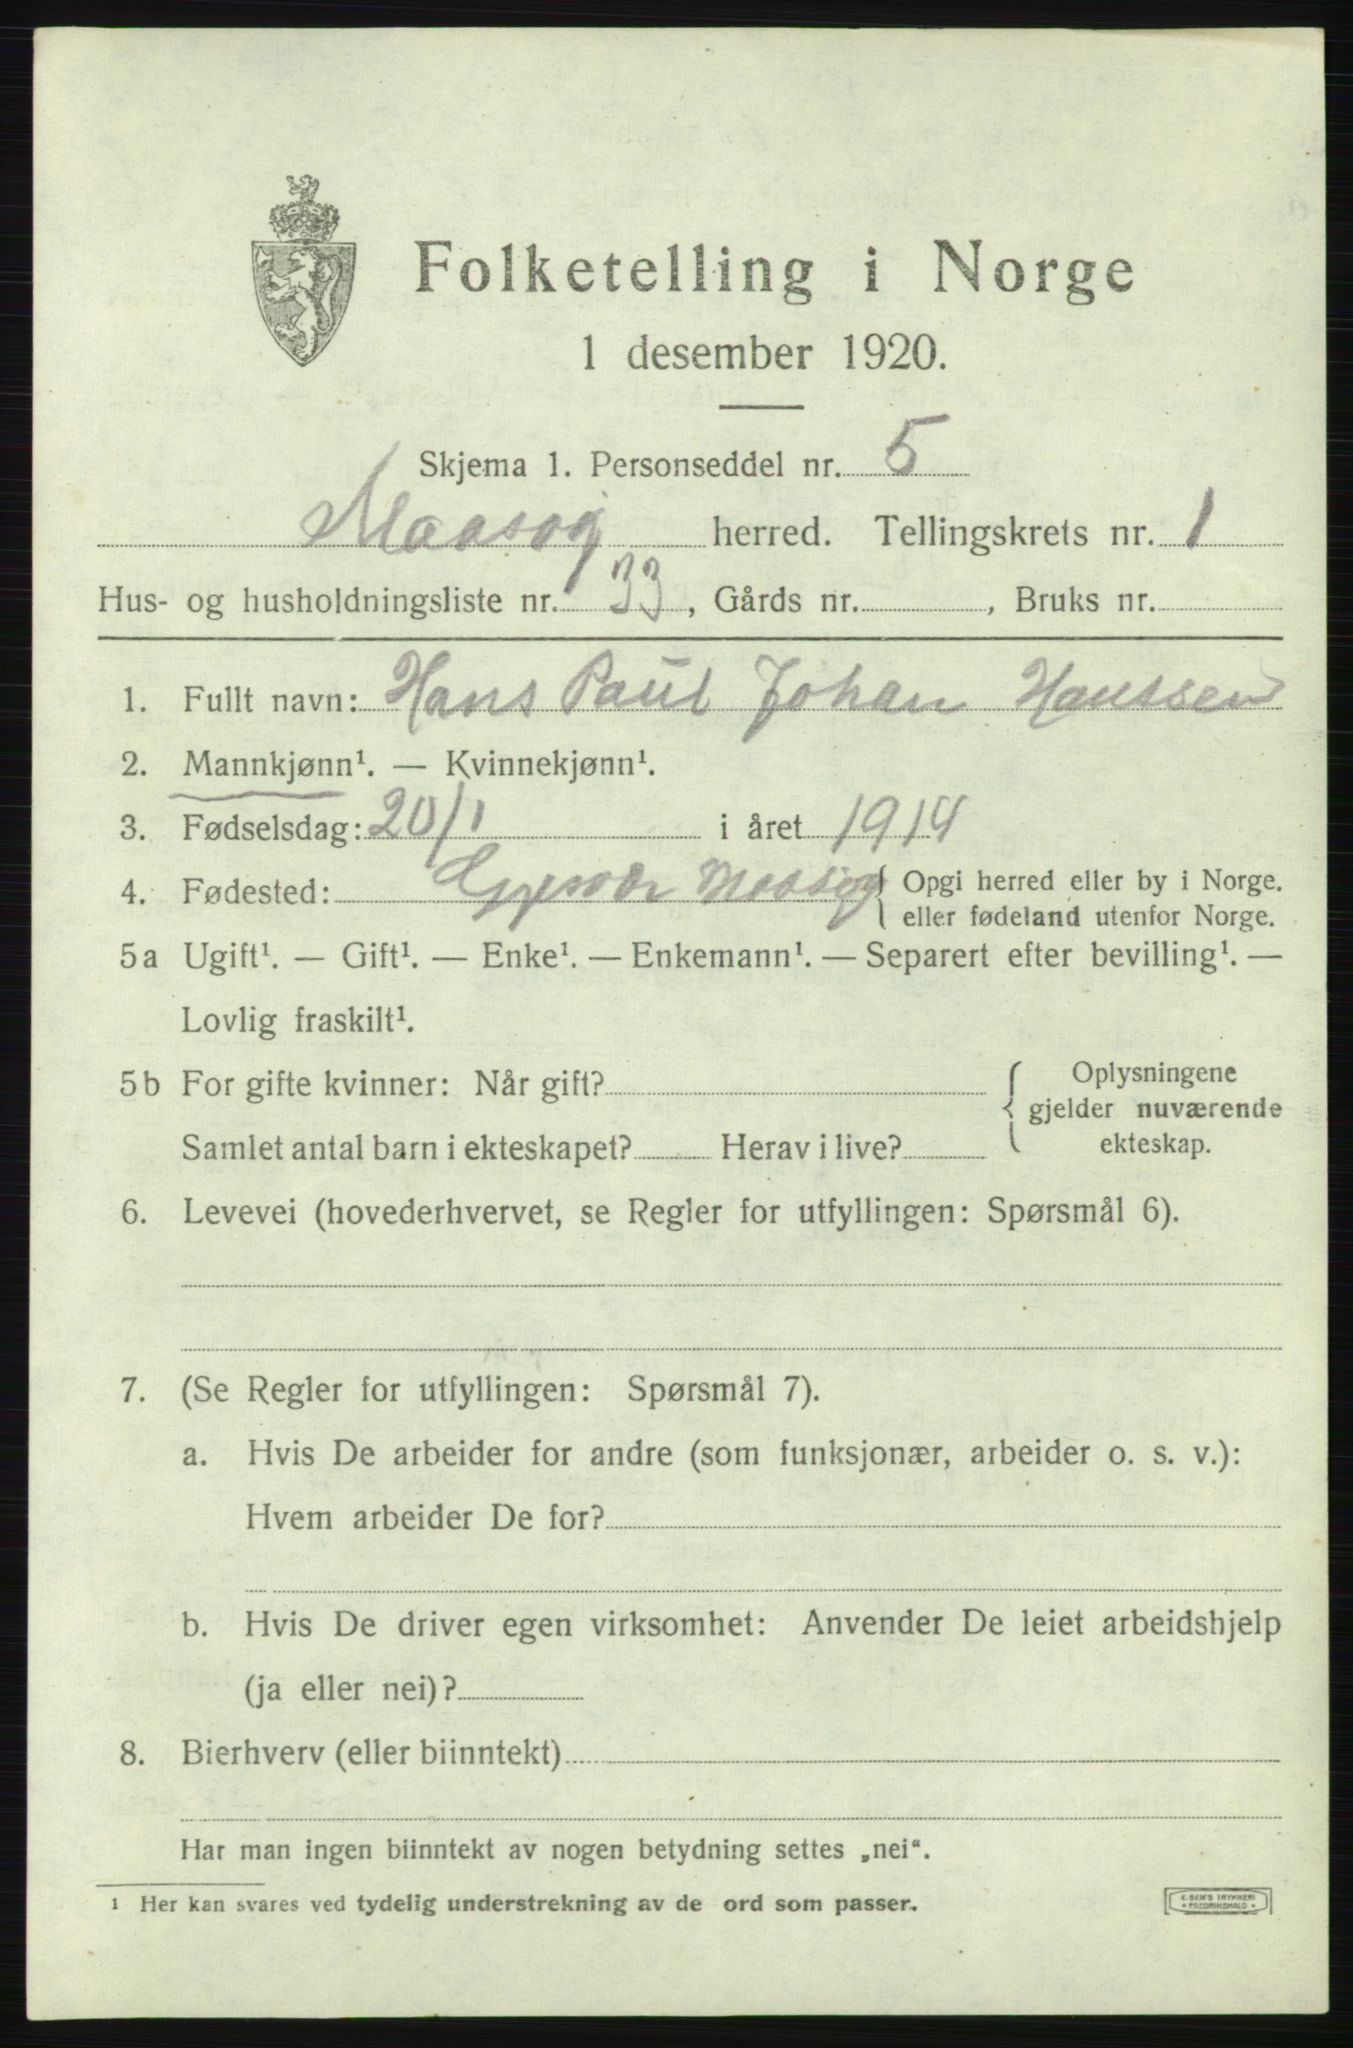 Folketelling i Norge
1 desember 1920.
Skjema 1. Personseddel nr. 5
Maasøy herred. Tellingskrets nr. 1
Hus- og husholdningsliste nr. 33, Gårds nr. , Bruks nr.
1. Fullt navn: Hans Paul Johan Hanssen
2. Mannkjønn¹. — Kvinnekjønn¹.
3. Fødselsdag: 20/1 i året 1914
4. Fødested: Gjesvær Maasøy { Opgi herred eller by i Norge.
eller fødeland utenfor Norge.
5a Ugift¹. — Gift¹. — Enke¹. — Enkemann¹. — Separert efter bevilling¹. —
Lovlig fraskilt¹.
5b For gifte kvinner: Når gift? { Oplysningene
gjelder nuværende
ekteskap.
Samlet antal barn i ekteskapet? Herav i live?
6. Levevei (hovederhvervet, se Regler for utfyllingen: Spørsmål 6).
7. (Se Regler for utfyllingen: Spørsmål 7).
a. Hvis De arbeider for andre (som funksjonær, arbeider o. s. v.):
Hvem arbeider De for?
b. Hvis De driver egen virksomhet: Anvender De leiet arbeidshjelp
(ja eller nei)?
8. Bierhverv (eller biinntekt)
Har man ingen biinntekt av nogen betydning settes „nei“.
¹ Her kan svares ved tydelig understrekning av de ord som passer.
E. SEM'S TRYKKERI
* FREDRIKSHALD *